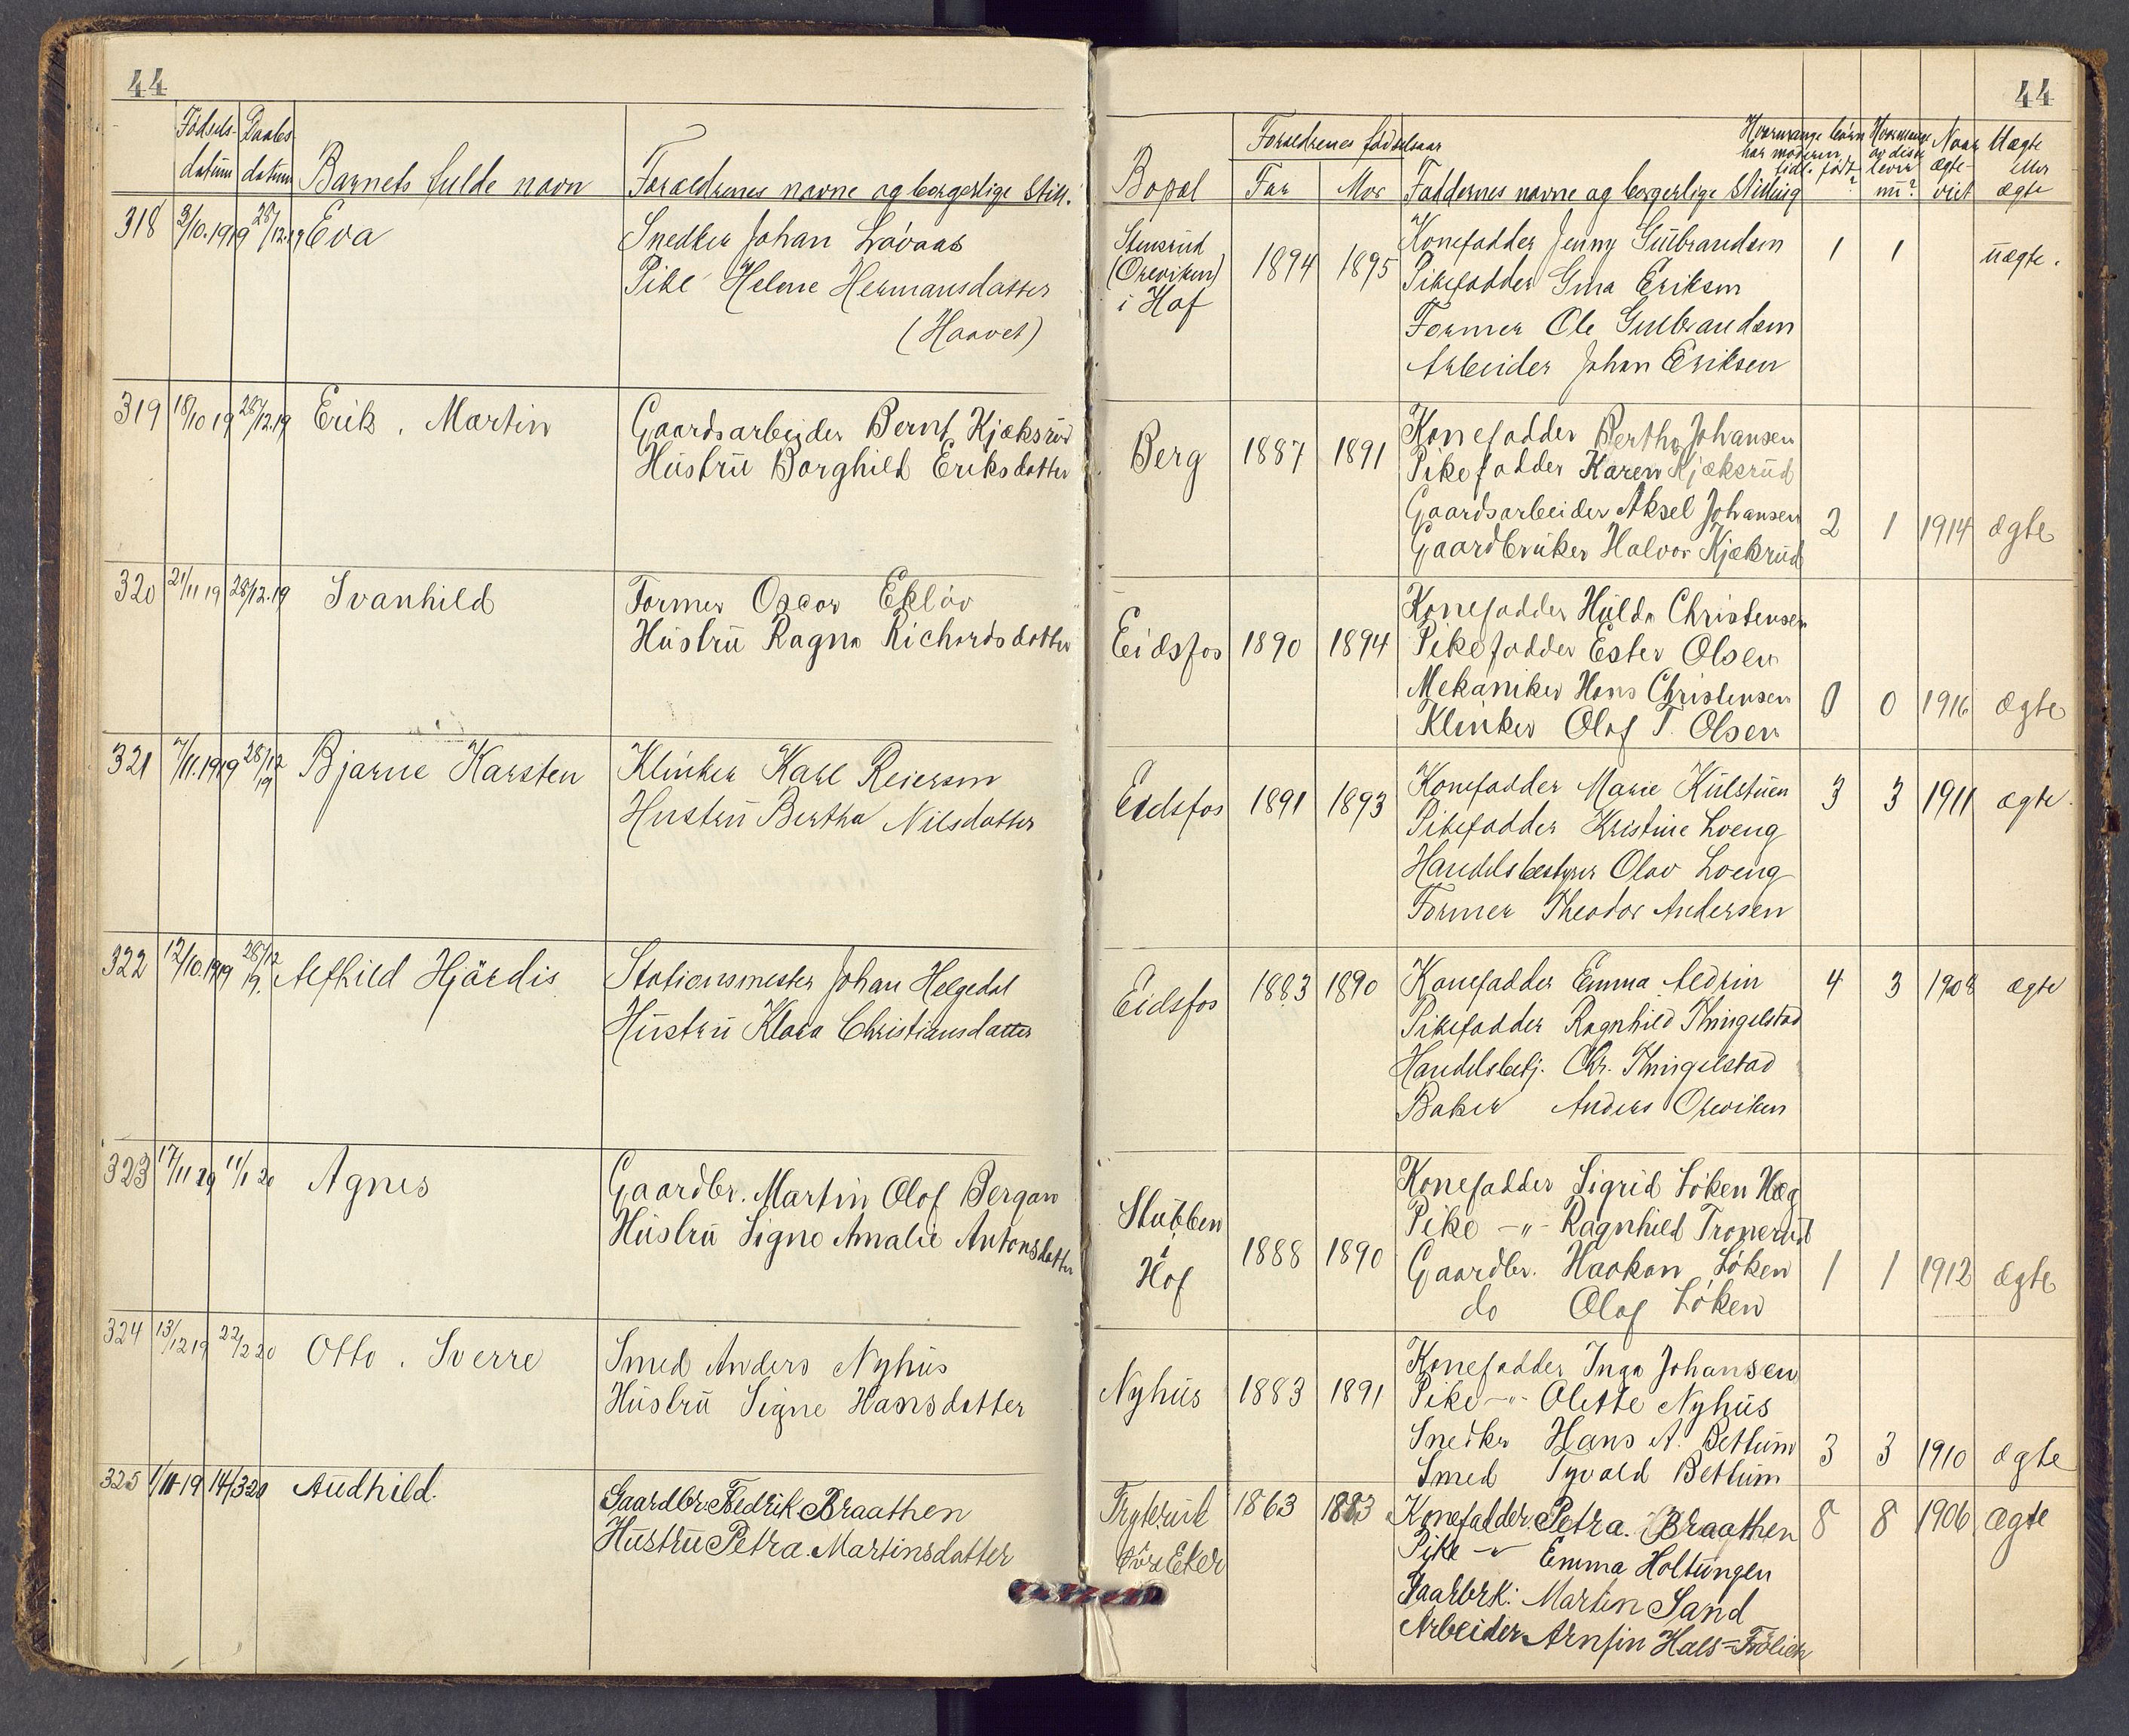 44
Fødsels-
datum
Daabs
datum
Barnets fulde navn
Foraeldrenes navne og borgerlige Still.
318 3/10.1919 28/12.19 Eva
Snedker Johan Løvaas
Pike Helene Hermansdatter
(Haavet)
319 18/10 19 28/12.19 Erik. Martin
Gaardsarbeider Bernt Kjæksrud
Hustrü Borghild Eriksdatter
320 21/11 19 28/12.19 Svanhild
Former Oscar Ekløv
Hüstrü Ragna Richardsdatter
321 7/11.1919 28/12 19 Bjarne Karsten
Klinker Karl Reiersen
Hustrü Bertha Nilsdatter
322 12/10.1919 28/12 19. Alfhild Hjärdis
Stationsmester Johan Helgedal
Hüstrü Klara Christiansdatter
323 17/11 19 11/1 20 Agnes
Gaardbr. Martin Olof Bergan
Hüstrü Signe Amalie Antonsdatter
324 13/12 19 22/2 20 Otto. Sverre
Smed Anders Nyhüs
Hüstrü Signe Hansdatter
325 1/11-19 14/3 20 Audhild.
Gaardbr. Fredrik Braathen
Hüstrü Petra. Martinsdatter
44
Bopæl
Foraeldrenes fødselsaar
Far Mor
Faddernes navne og borgerlige Stilling
Hvormange børn
har moderen
tidl. født
?
Hvormange
av disse
lever
nu?
Naar
ægte-
viet
Uægte
eller
ægte
Stensrud
(Oreviken)
i Hof
1894 1895
Konefadder Jenny Gülbrandsen 1 1 üægte.
Pikefadder Gina Eriksen
Former Ole Gulbrandsen
Arbeider Johan Eriksen
Berg 1887 1891
Konefadder Bertha Johansen
Pikefadder Karen Kjæksrüd
Gaardsarbeider Aksel Johansen 2 1 1914 ægte
Gaardbrüker Halvor Kjæksrüd
Eidsfos 1890 1894
Konefadder Hülda Christensen
Pikefadder Ester Olsen
Mekaniker Hans Christensen 0 0 1916 ægte
Klinker Olaf T. Olsen
Eidsfos 1891 1893
Konefadder Marie Külstüen 3 3 1911 ægte.
Pikefadder Kristine Loeng
Handelsbestyrer Olav Loeng
Former Theodor Andersen
Eidsfos 1883 1890
Konefadder Emma Aldrin 4 3 1908 ægte
Pikefadder Ragnhild Thingelstad
Handelsbetj. Chr. Thingelstad
Baker Anders Oreviken
Stubben
i
Hof
1888 1890
Konefadder Sigrid Løken Hæg
Pike -"- Ragnhild Tronerüd
Gaardbr. Haakon Løken 1 1 1912 ægte
do Olaf Løken
Nyhüs 1883 1891
Konefadder Inga Johansen
Pike -"- Olette Nyhüs
Snedker Hans A. Bettüm 3 3 1910 ægte
Smed Tyvald Bettüm
Tryterud
Eker
1863 1883
Konefadder. Petra. Braathen 8 8 1906 ægte
Pike -"- Emma Holtungen
Gaarbrk: Martin Sand
Arbeider Arnfin Hals=Frölich